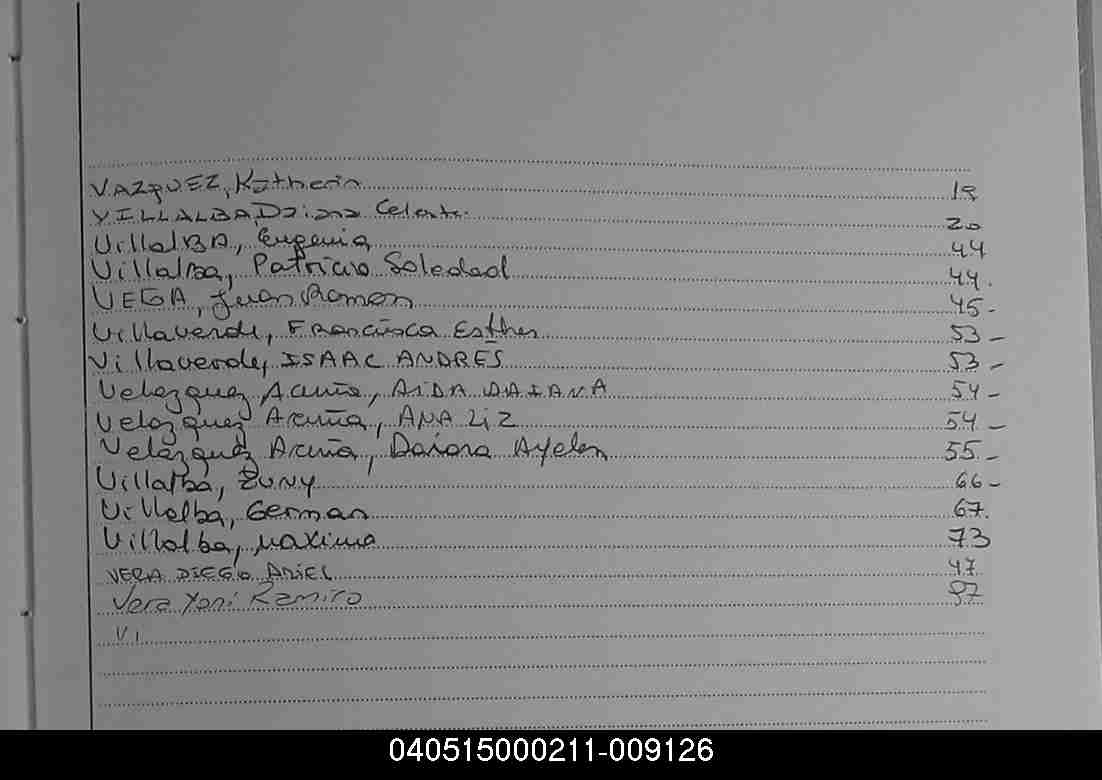 VAZQUEZ, Katherin 19
VILLALBA, Daiana Celeste. 20
Villalba, Eugenia 44
Villalba, Patricia Soledad 44.
VEGA, Juan Ramon 45-
Villaverde, Francisca Esther 53-
Villaverde, ISAAC ANDRES 53-
Velazquez Acuña, AIDA DAIANA 54-
Velazquez Acuña, ANA LIZ 54-
Velazquez Acuña, Daiana Ayelen 55-
Villalba, ZUNY 66-
Villalba, German 67.
Villalba, Maximo 73
VERA DIEGO ARIEL 47
Vera Yoni Ramiro 97
Vi
040515000211-009126